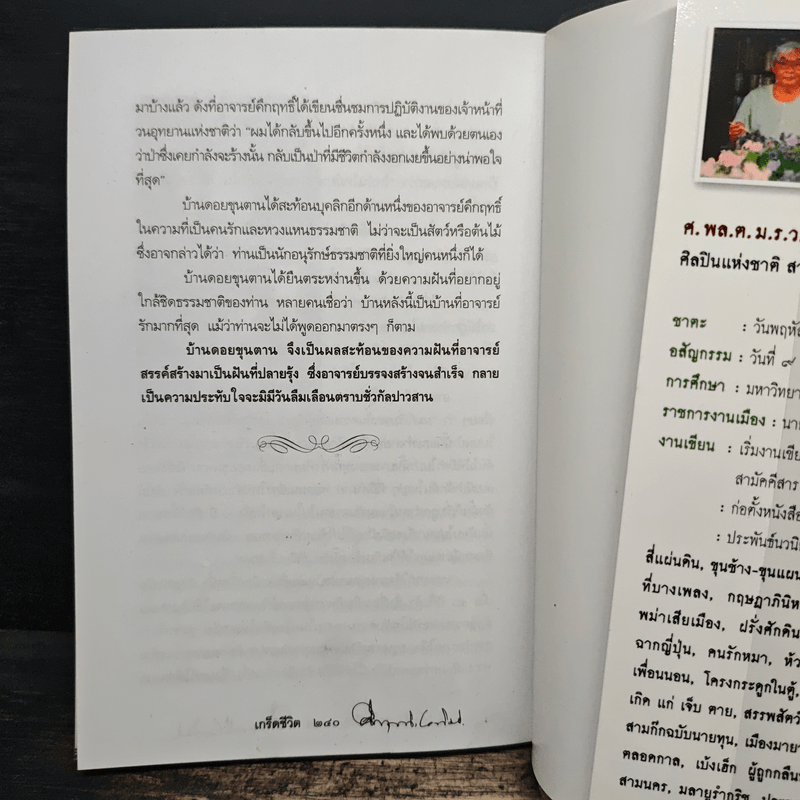 มาบ้างแล้ว ดังที่อาจารย์คึกฤทธิ์ได้เขียนชื่นชมการปฏิบัติงานของเจ้าหน้าที่
วนอุทยานแห่งชาติว่า "ผมได้กลับขึ้นไปอีกครั้งหนึ่ง และได้พบด้วยตนเอง
ว่าป่าซึ่งเคยกำลังจะร้างนั้น กลับเป็นป่าที่มีชีวิตกำลังงอกเงยขึ้นอย่างน่าพอใจ
ที่สุด"
บ้านดอยขุนตานได้สะท้อนบุคลิกอีกด้านหนึ่งของอาจารย์คึกฤทธิ์
ในความที่เป็นคนรักและหวงแหนธรรมชาติ ไม่ว่าจะเป็นสัตว์หรือต้นไม้
ซึ่งอาจกล่าวได้ว่า ท่านเป็นนักอนุรักษ์ธรรมชาติที่ยิ่งใหญ่คนหนึ่งก็ได้
บ้านดอยขุนตานได้ยืนตระหง่านขึ้น ด้วยความฝันที่อยากอยู่
ใกล้ชิดธรรมชาติของท่าน หลายคนเชื่อว่า บ้านหลังนี้เป็นบ้านที่อาจารย์
รักมากที่สุด แม้ว่าท่านจะไม่ได้พูดออกมาตรงๆ ก็ตาม
บ้านดอยขุนตาน จึงเป็นผลสะท้อนของความฝันที่อาจารย์
สรรค์สร้างมาเป็นฝันที่ปลายรุ้ง ซึ่งอาจารย์บรรจงสร้างจนสำเร็จ กลาย
เป็นความประทับใจจะมิมีวันลืมเลือนตราบชั่วกัลปาวสาน
เกร็ดชีวิต ๒๔๐
ศ.พล.ต.ม.ร.ว.
ศิลปินแห่งชาติ
ชาตะ : วันพฤหั
อสัญกรรม : วันที่ ๙
การศึกษา : มหาวิทยา
ราชการงานเมือง : นา
งานเขียน : เริ่มงานเขีย
สามัคคีสาร
: ก่อตั้งหนังสือ
: ประพันธ์นวนิ
สี่แผ่นดิน, ขุนช้าง-ขุนแผน
ที่บางเพลง, กฤษฎาภินิห
พม่าเสียเมือง, ฝรั่งศักดิน
ฉากญี่ปุ่น, คนรักหมา, ห้ว
เพื่อนนอน, โครงกระดูกในตู้,
เกิด แก่ เจ็บ ตาย, สรรพสัตว์
สามก๊กฉบับนายทุน, เมืองมายา
ตลอดกาล, เบ้งเฮ็ก ผู้ถูกกลืน
สามนคร, มลายูรำกริช,